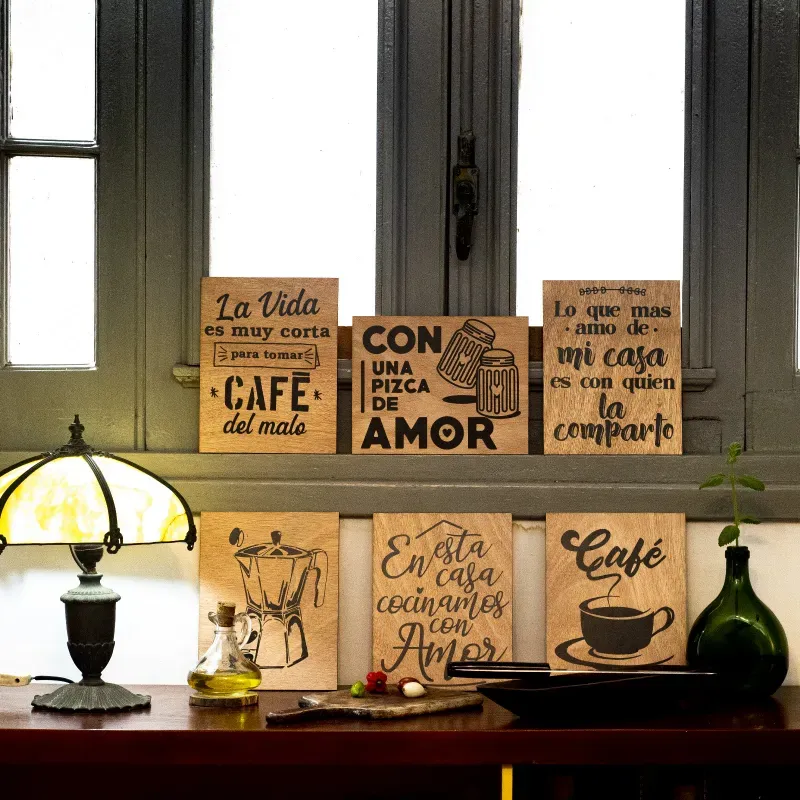 La Vida
es muy corta
para tomar
CAFÉ
del malo
CON
UNA
PIZCA
DE
AMOR
Lo que mas
amo de
mi casa
es con quien
la
comparto
En esta
casa
cocinamos
con
Amor
Café